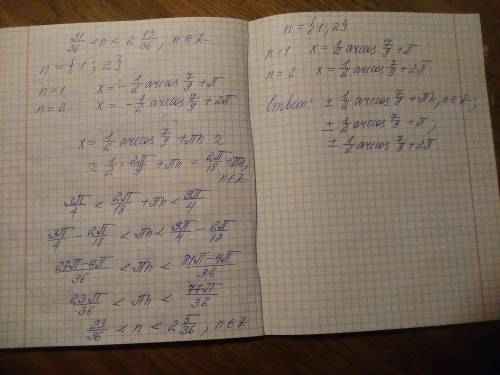 31/36 < n < 2 13/36, n ∈ Z
n = {1; 2}
n=1 x = -1/2 arccos 7/9 + π
n=2 x = -1/2 arccos 7/9 + 2π
x = 1/2 arccos 7/9 + πn ≈
≈ 1/2 · 2π/9 + πn = 2π/18 + πn,
n ∈ Z
3π/4 < 2π/18 + πn < 9π/4
3π/4 - 2π/18 < πn < 9π/4 - 2π/18
27π-4π/36 < πn < 81π-4π/36
23π/36 < πn < 77π/36
23/36 < n < 2 5/36, n ∈ Z
n = {1; 2}
n=1 x = 1/2 arccos 7/9 + π
n=2 x = 1/2 arccos 7/9 + 2π
Ответ: ± 1/2 arccos 7/9 + πn, n ∈ Z;
± 1/2 arccos 7/9 + π;
± 1/2 arccos 7/9 + 2π